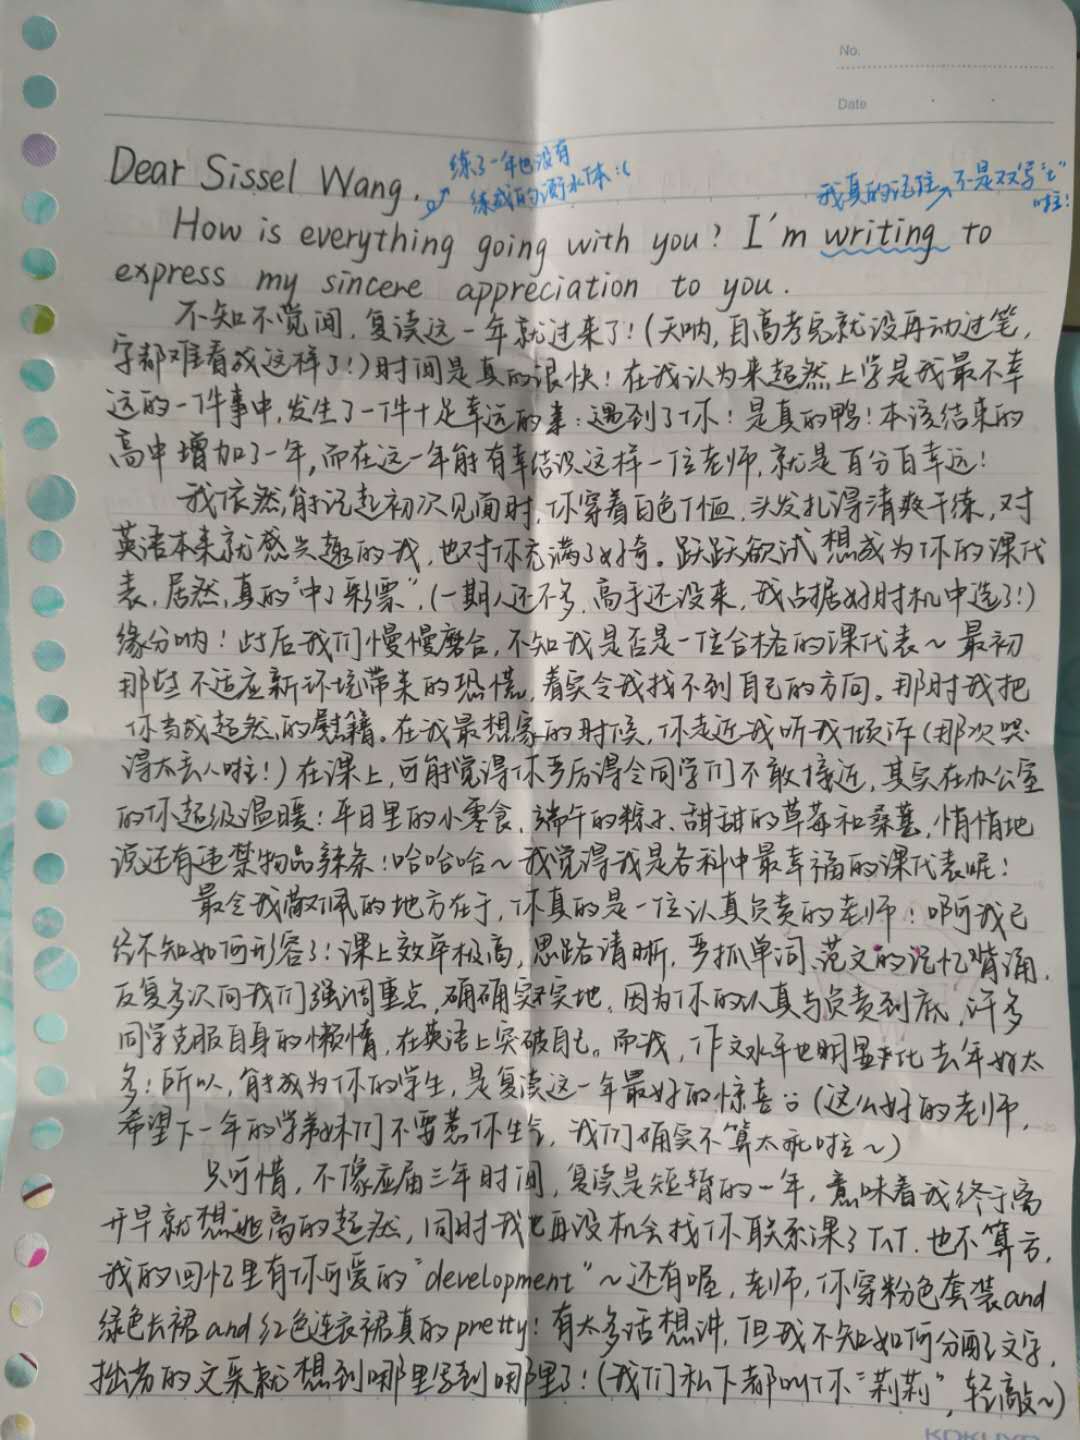 No.
Date
Dear Sissel Wang,
练了一年也没有
练成的衡水体:(
我真的记住 不是双写"t"
啦!
How is everything going with you? I'm writing to
express my sincere appreciation to you.
不知不觉间,复读这一年就过来了!(天呐,自高考完就没再动过笔,
字都难看成这样了!)时间是真的很快!在我认为来超然上学是我最不幸
运的一件事中,发生了一件十足幸运的事:遇到了你!是真的鸭!本该结束的
高中增加了一年,而在这一年能有幸结识这样一位老师,就是百分百幸运!
我依然能记起初次见面时,你穿着白色T恤,头发扎得清爽干练,对
英语本来就感兴趣的我,也对你充满了好奇。跃跃欲试想成为你的课代
表,居然真的"中了彩票",(一期人还不多,高手还没来,我占据好时机中选了!)
缘分呐!此后我们慢慢磨合,不知我是否是一位合格的课代表~最初
那些不适应新环境带来的恐慌,着实令我找不到自己的方向。那时我把
你当成超然的慰籍。在我最想家的时候,你走近我听我倾诉(那次哭
得太丢人啦!)在课上,可能觉得你严厉得令同学们不敢接近,其实在办公室
的你超级温暖:平日里的小零食、端午的粽子、甜甜的草莓和桑葚,悄悄地
说还有违禁物品辣条!哈哈哈~我觉得我是各科中最幸福的课代表呢!
最令我敬佩的地方在于,你真的是一位认真负责的老师!啊我已
经不知如何形容了!课上效率极高,思路清晰,严抓单词、范文的记忆背诵,
反复多次向我们强调重点,确确实实地,因为你的认真与负责到底,许多
同学克服自身的懒惰,在英语上突破自己。而我,作文水平也明显比去年好太
多!所以,能成为你的学生,是复读这一年最好的惊喜(这么好的老师,
希望下一年的学弟妹们不要惹你生气,我们确实不算太乖啦~)
只可惜,不像应届三年时间,复读是短暂的一年,意味着我终于离
开早就想逃离的超然,同时我也再没机会找你联系课了TAT.也不算亏,
我的回忆里有你可爱的"development"~还有喔,老师,你穿粉色套装and
绿色长裙and红色连衣裙真的pretty!有太多话想讲,但我不知如何分配文字,
拙劣的文采就想到哪里写到哪里了!(我们私下都叫你"莉莉",轻敲~)
KOKUYO